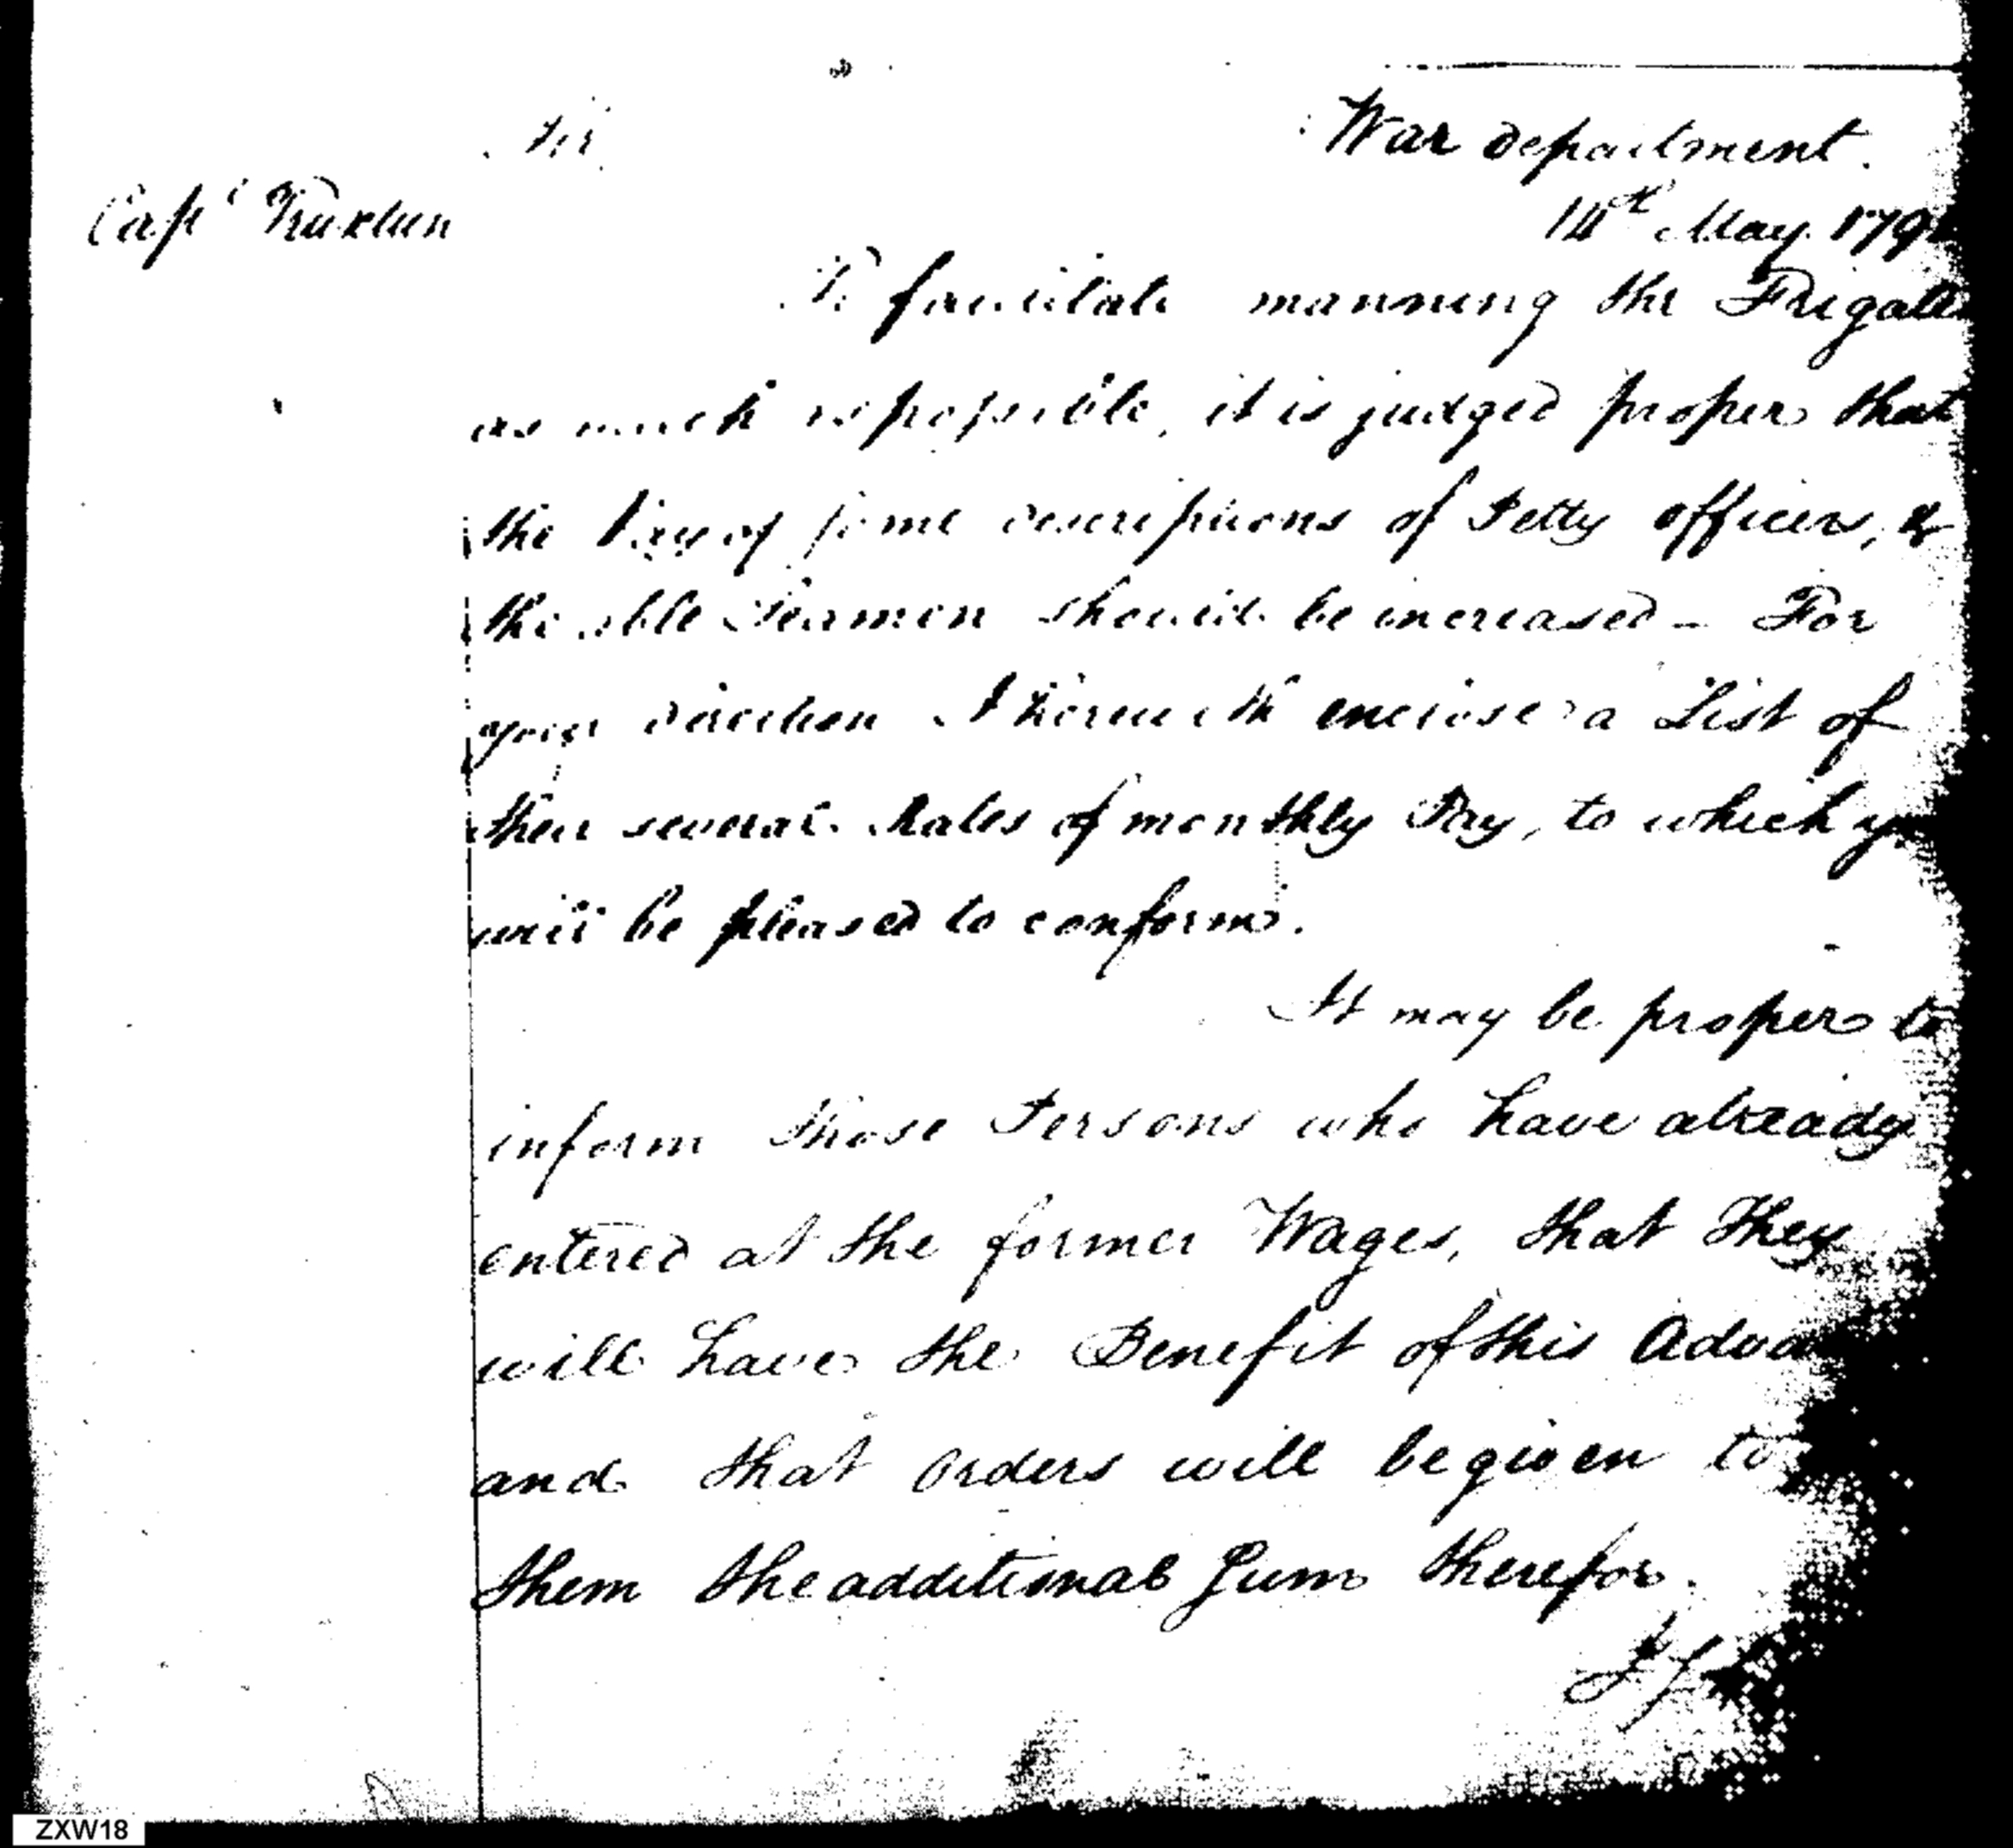 Sir
War department.
Capt Truxtun
14th May 179
To facilitate manning the Frigate
as much as possible, it is judged proper that
the Pay of some descriptions of Petty officers, &
the able Seamen should be increased – For
your direction I herewith enclose a List of
their several Rates of monthly Pay, to which
will be pleased to conform.
It may be proper to
inform those Persons who have already
entered at the former Wages, that they
will have the Benefit of this
and that orders will be given to
them the additional Sum therefor.
ZXW18